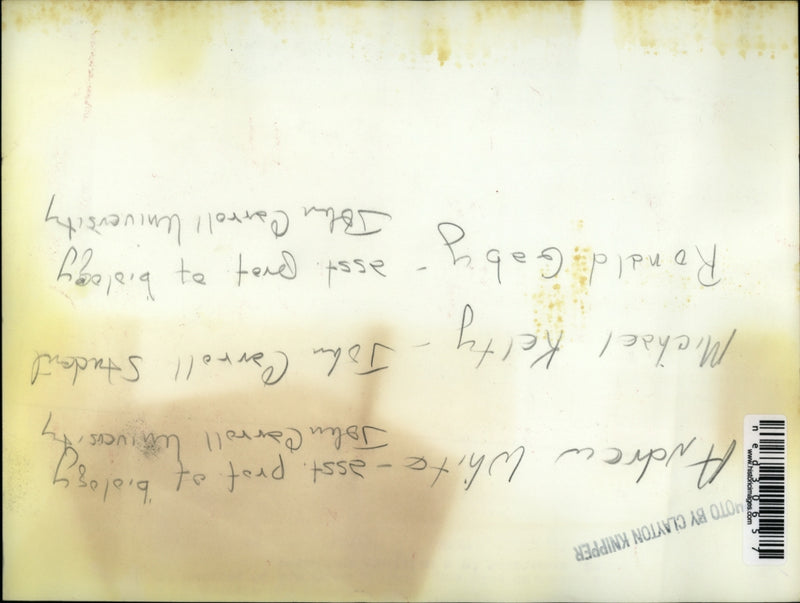 Andrew White - asst. prof of biology
John Carroll University
Michael Kelty - John Carroll Student
Ronald Gaby - asst. prof of biology
John Carroll University
PHOTO BY CLAYTON KNIPPER
ned30657
www.historicimages.com